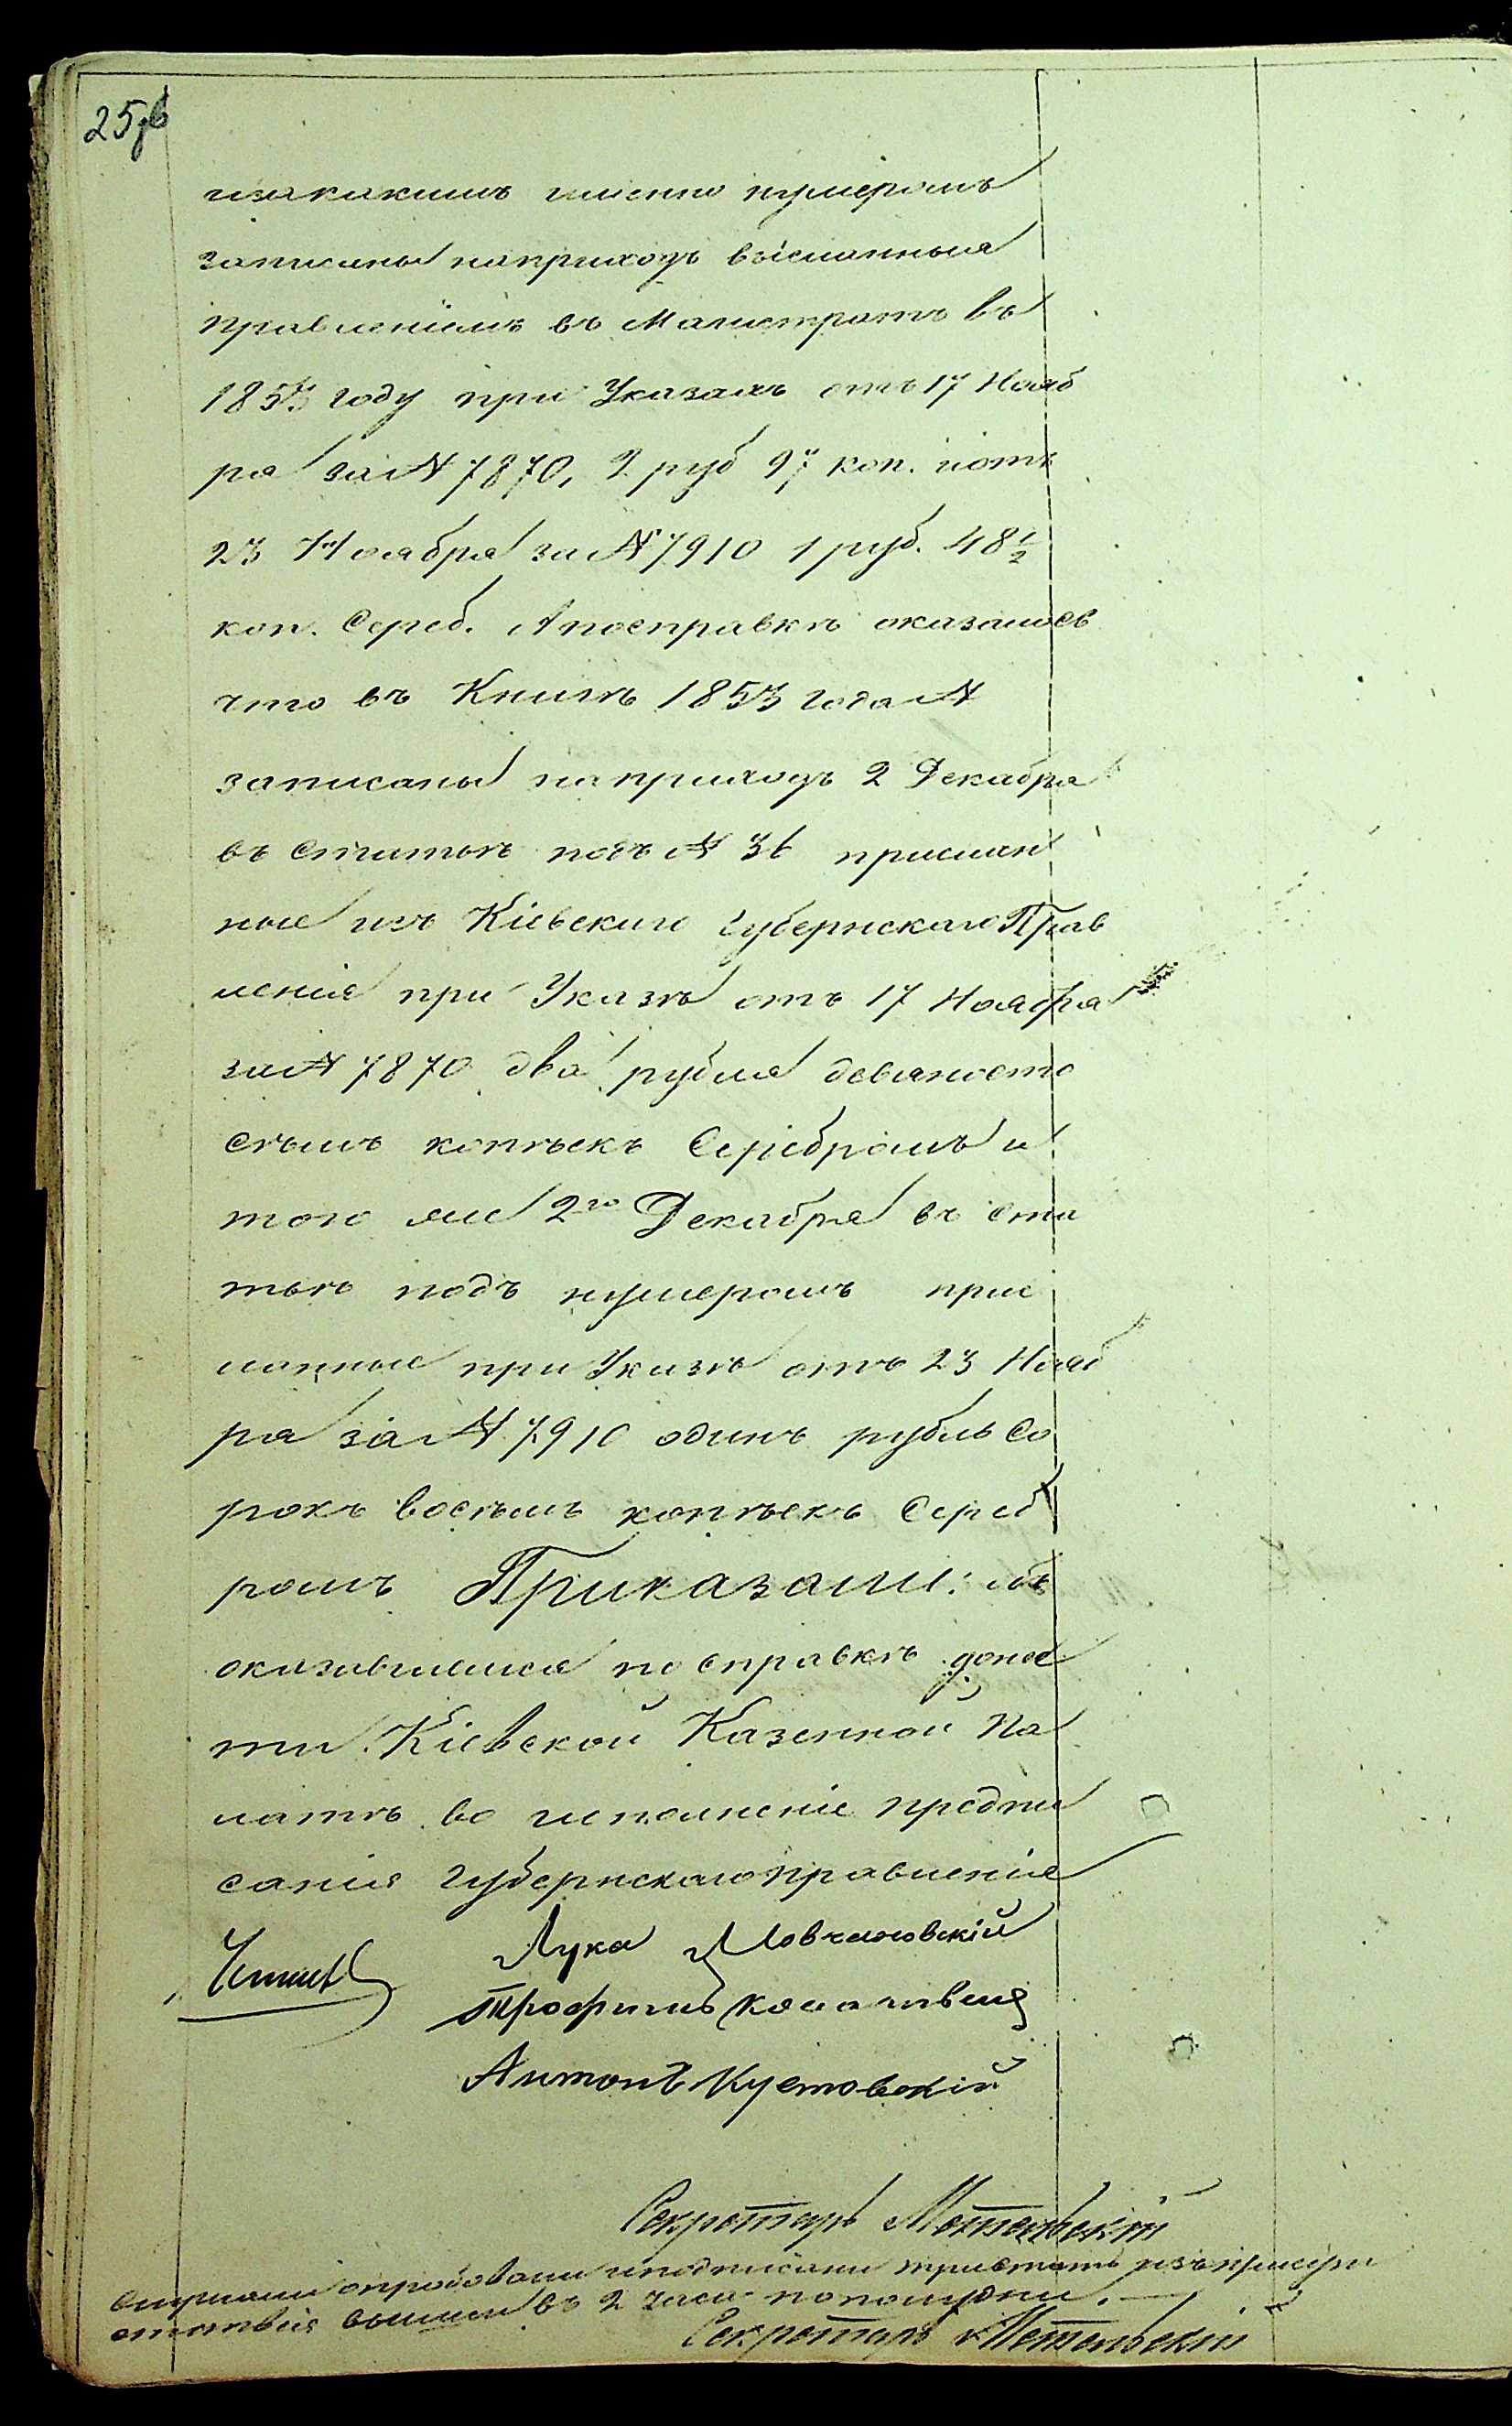 25 об
изакакимъ именно нумеромъ
записаны наприходъ высланныя
Правленіемъ въ Магистратъ въ
1853 году при Указахъ отъ 17 Нояб
ря за № 7870, 2 руб 97 коп. иотъ
23 Ноября за № 7910 1 руб. 48 1/2
коп. Сереб. Апосправкѣ оказалось
что въ Книгѣ 1853 года №
записаны наприходъ 2 Декабря
въ Статьѣ подъ № 36 прислан
ные изъ Кіевскаго Губернскаго Прав
ленія при Указѣ отъ 17 Ноября
за № 7870 два рубля девяносто
семь копѣекъ Серебромъ и
того же 2го Декабря въ ста
тьѣ подъ нумеромъ прис
ланные при Указѣ отъ 23 Нояб
ря за № 7910 одинъ рубль Со
рокъ восемь копѣекъ Сереб
ромъ Приказали: объ
оказавшемся по справкѣ донес
ти Кіевской Казенной Па
латѣ во исполненіе предпи
санія Губернскаго правленія
Лука
Трофимъ
Антонъ Кустовскій
Секретарь Метельскій
опробовали иподписали изъ присут
ствія вышли въ 2 часа пополудни.
Секретарь Метельскій